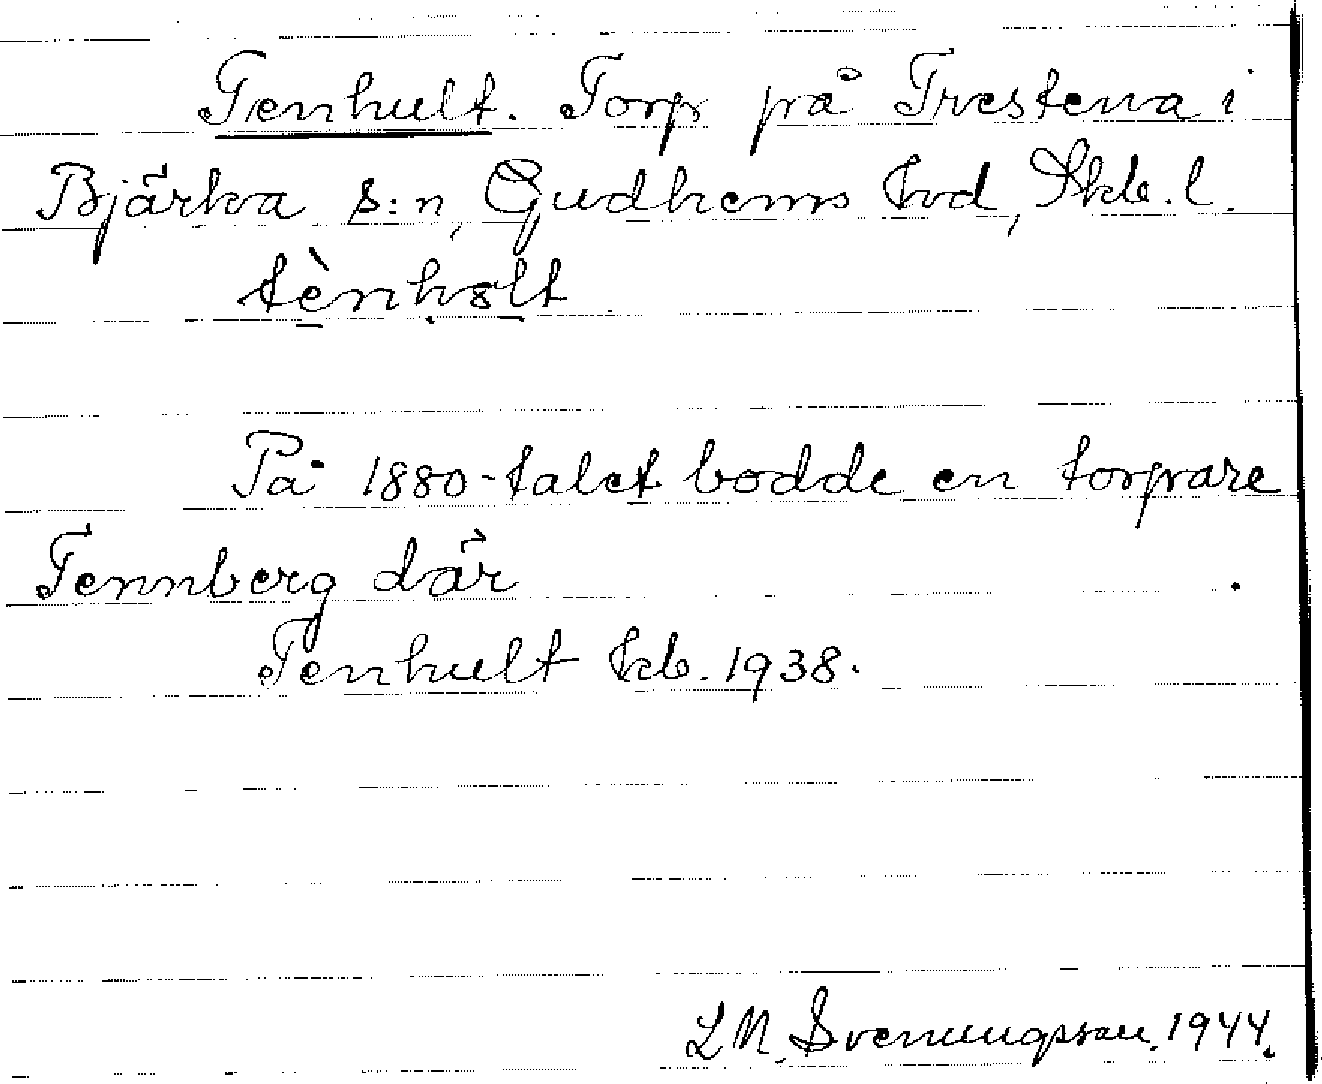 Tenhult. Torp på Trestena i
Bjärka s:n, Gudhems hd, Skb. l.
tènhɷlt
På 1880-talet bodde en torpare
Tennberg där.
Tenhult kb. 1938.
L M Svenungsson, 1944.